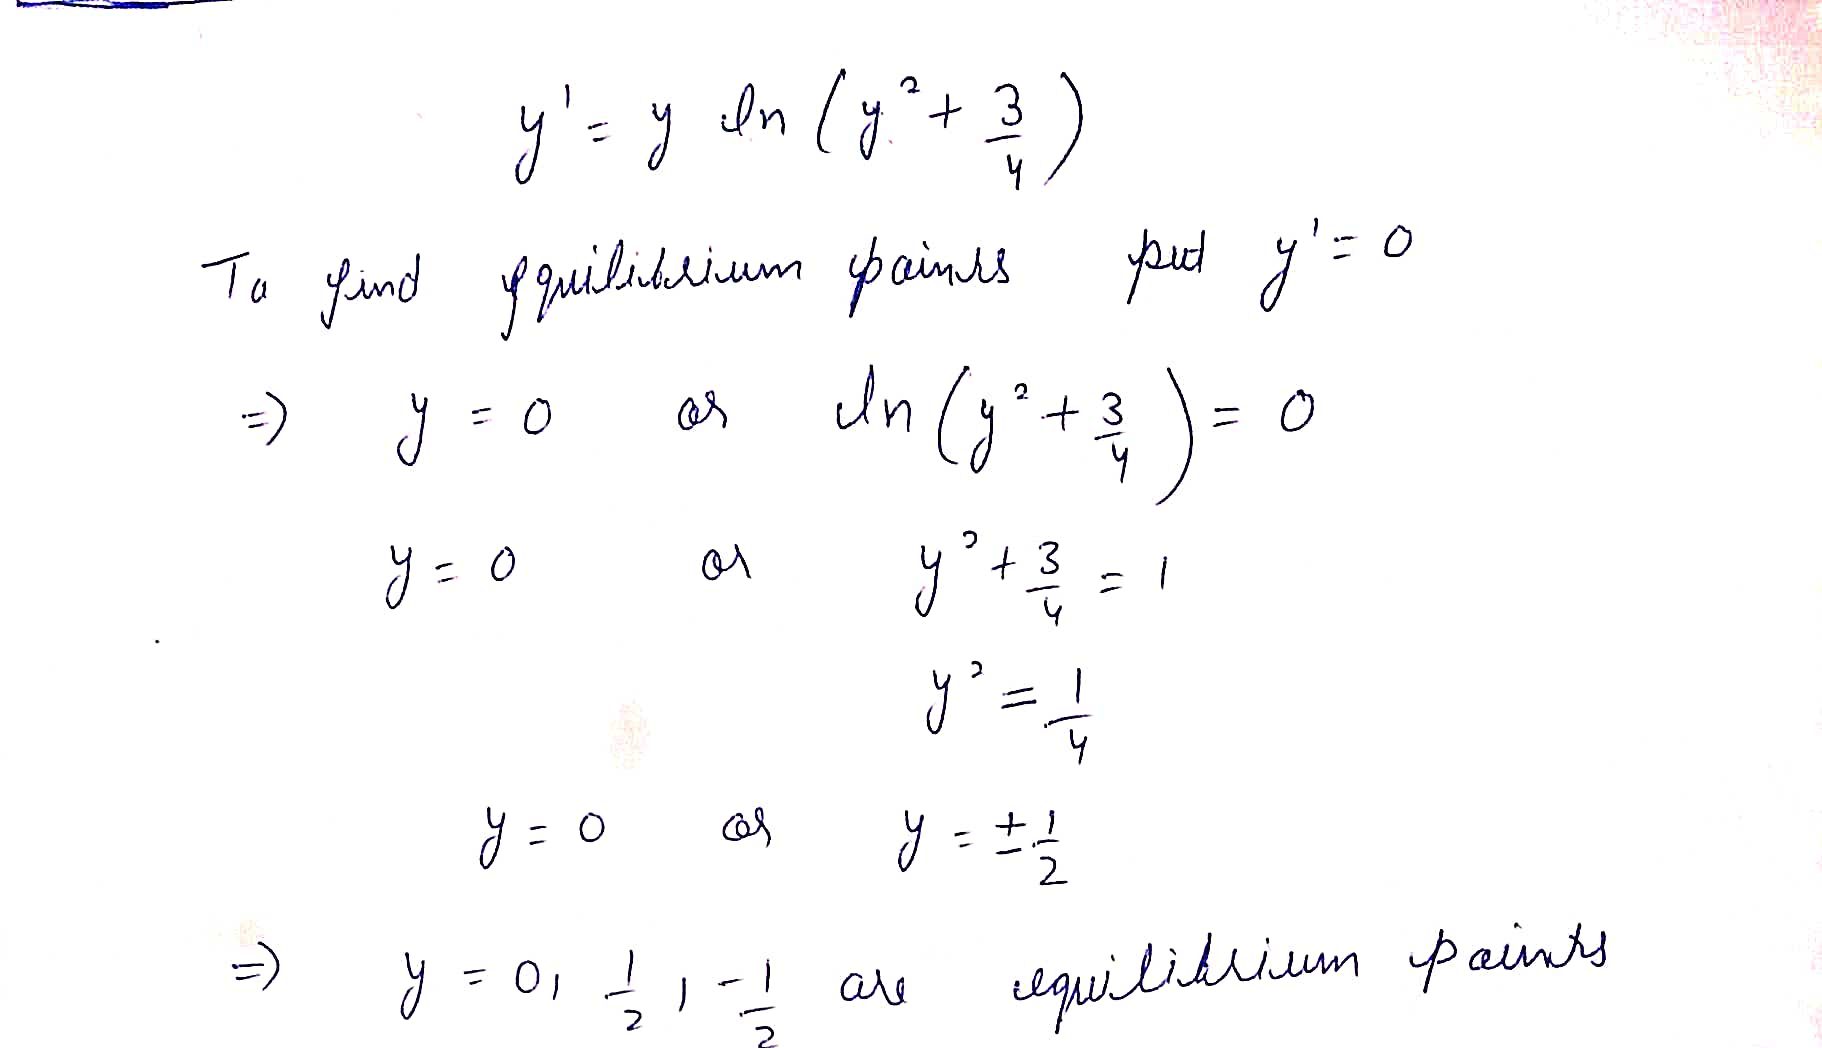 y' = y ln (y² + 3/4)
To find equilibrium points put y' = 0
⇒ y = 0 or ln (y² + 3/4) = 0
y = 0 or y² + 3/4 = 1
y² = 1/4
y = 0 or y = ± 1/2
⇒ y = 0, 1/2, -1/2 are equilibrium points